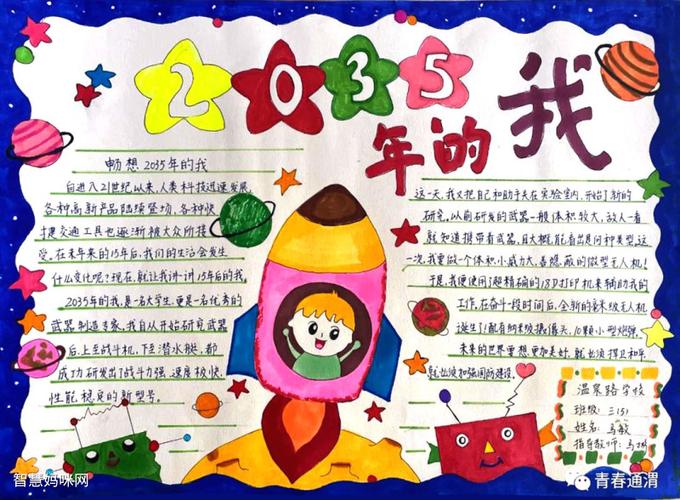 2035
年的我
畅想2035年的我
自进入21世纪以来,人类科技迅速发展,
各种高新产品陆续登场,各种快
捷交通工具也逐渐被大众所接
受。在未来的15年后,我们的生活会发生
什么变化呢?现在,就让我讲讲15年后的我。
2035年的我,是一名大学生,更是一名优秀的
武器制造专家,我自从开始研究武器
后,上至战斗机,下至潜水艇,都
成功研发出了战斗力强,速度极快,
性能稳良的新型号。
这一天,我又把自己和助手关在实验室内,开始了新的
研究,以前研发的武器一般体积较大,敌人一看
就知道携带有武器,且大概能看出是何种类型,这
一次,我要做一个体积小威力大,善隐蔽的微型无人机!
于是,我便使用了超精确的18D打印机来辅助我的
工作,在奋斗一段时间后,全新的毫米级无人机
诞生了!配有纳米级摄像头,10颗小型炮弹,
未来的世界要想更加美好,就必须捍卫和平
就必须加强国防建设。
温泉路学校
班级:三(5)
姓名:马敏
指导教师:马
智慧妈咪网
青春通渭